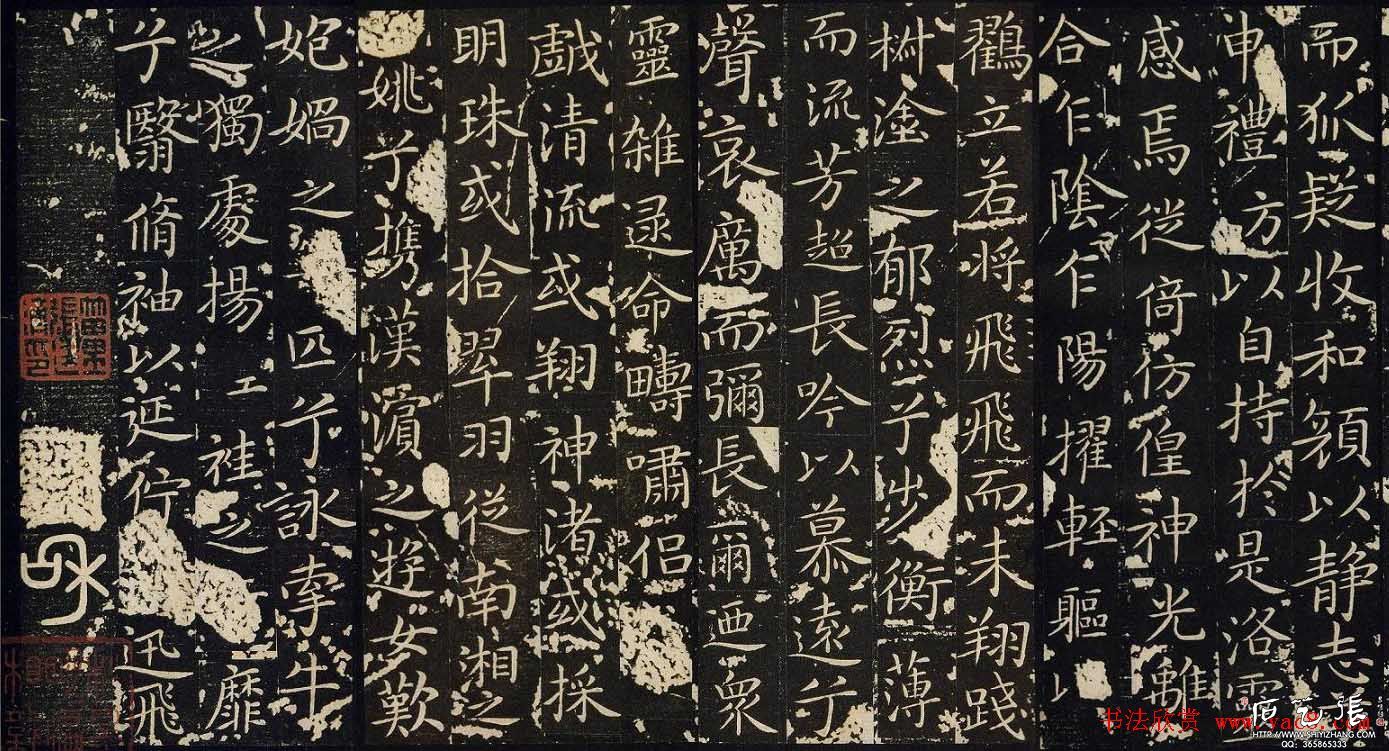 而狐疑收和顏以静志
申禮方以自持於是洛靈
感焉徙倚仿偟神光離
合乍陰乍陽擢輕軀以
鸖立若将飛飛而未翔踐
椒塗之郁烈兮步衡薄
而流芳超長吟以慕遠兮
聲哀厲而彌長爾迺眾
靈雜遝命疇嘯侣
戲清流或翔神渚或採
明珠或拾翠羽從南湘之
姚兮攜漢濱之遊女歎
妑媧之匹兮詠牽牛
之獨處揚工袿之靡
兮翳脩袖以延佇迅飛
书法欣赏
HTTP://WWW.SHIYIZHANG.COM
QQ: 365865333